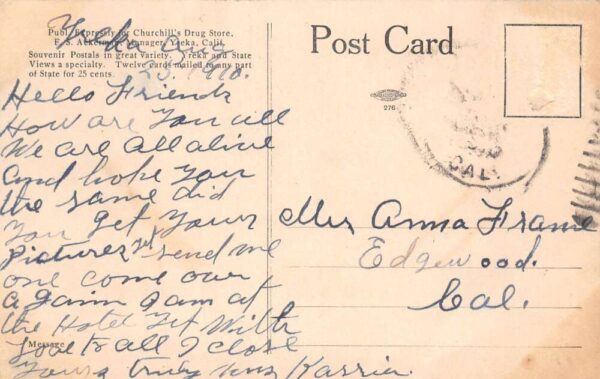 Publ. Expressly for Churchill's Drug Store,
E. S. Ackerman, Manager, Yreka, Calif.
Souvenir Postals in great Variety. Yreka and State
Views a specialty. Twelve cards mailed to any part
of State for 25 cents.
Post Card
276
CAL.
Yreka
25 1910.
Hello Friends
How are you all
We are all alive
and hoke you
the same did
you get your
pictures send me
one come over
againn I am at
the Hotel yet With
Love to all I close
Message
Yours truly Karrin
Mrs Anna Frame
Edgewood.
Cal.